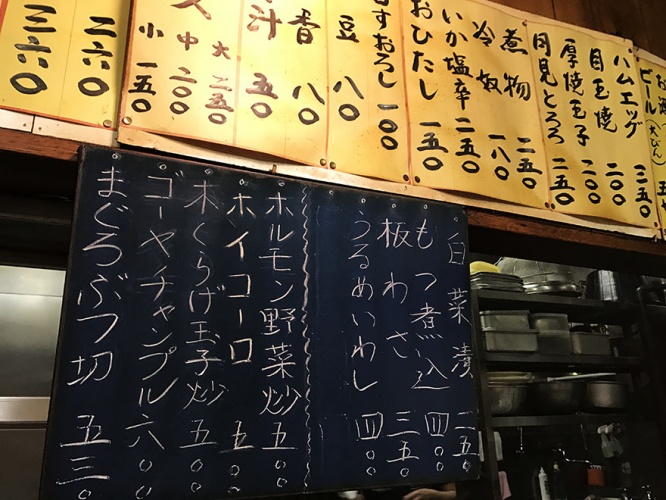 ビール(大びん)
ハムエッグ 三五〇
目玉焼 二〇〇
厚焼玉子 二〇〇
月見とろろ 二五〇
煮物 二五〇
冷奴 一八〇
いか塩辛 二五〇
おひたし 一五〇
おろし 一〇〇
豆 八〇
香 八〇
汁 五〇
大 二五〇
中 二〇〇
小 一五〇
二六〇
三六〇
白菜漬 二五〇
もつ煮込 四〇〇
板わさ 三五〇
うるめいわし 四〇〇
ホルモン野菜炒 五〇〇
ホイコーロ 五〇〇
木くらげ玉子炒 五〇〇
ゴーヤチャンプル 六〇〇
まぐろぶつ切 五三〇